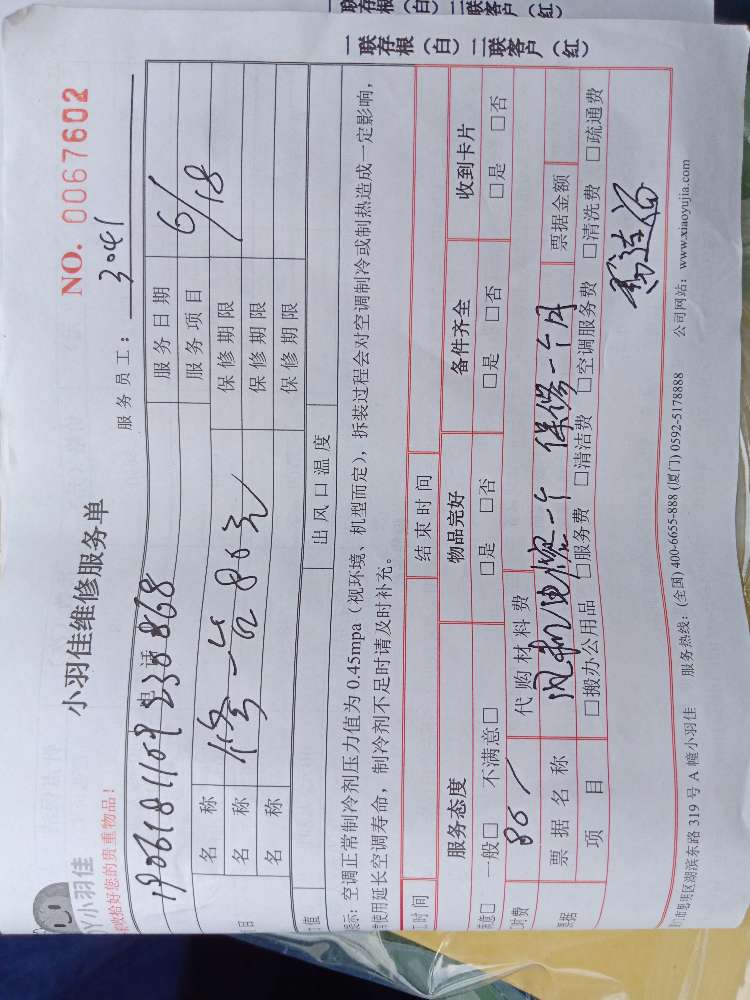 一联存根（白）二联客户（红）
一联存根（白）二联客户（红）
小羽佳维修服务单
NO. 0067602
Y小羽佳
收拾好您的贵重物品！
服务员工：3041
电话
服务日期 6/18
名称
服务项目
名称 修一台 80元
保修期限
名称
保修期限
保修期限
出风口温度
提示：空调正常制冷剂压力值为 0.45mpa（视环境、机型而定），拆装过程会对空调制冷或制热造成一定影响，
使用延长空调寿命，制冷剂不足时请及时补充。
工时间
结束时间
服务态度 物品完好 备件齐全 收到卡片
满意□ 一般□ 不满意□ □是 □否 □是 □否 □是 □否
工时费 80 代购材料费
票据 票据名称 风机电容一个 保修一个月 票据金额
项目 □搬办公用品 □服务费 □清洁费 □空调服务费 □清洗费 □疏通费
门市思明区湖滨东路 319 号 A 幢小羽佳 服务热线：(全国) 400-6655-888 (厦门) 0592-5178888 公司网站：www.xiaoyujia.com